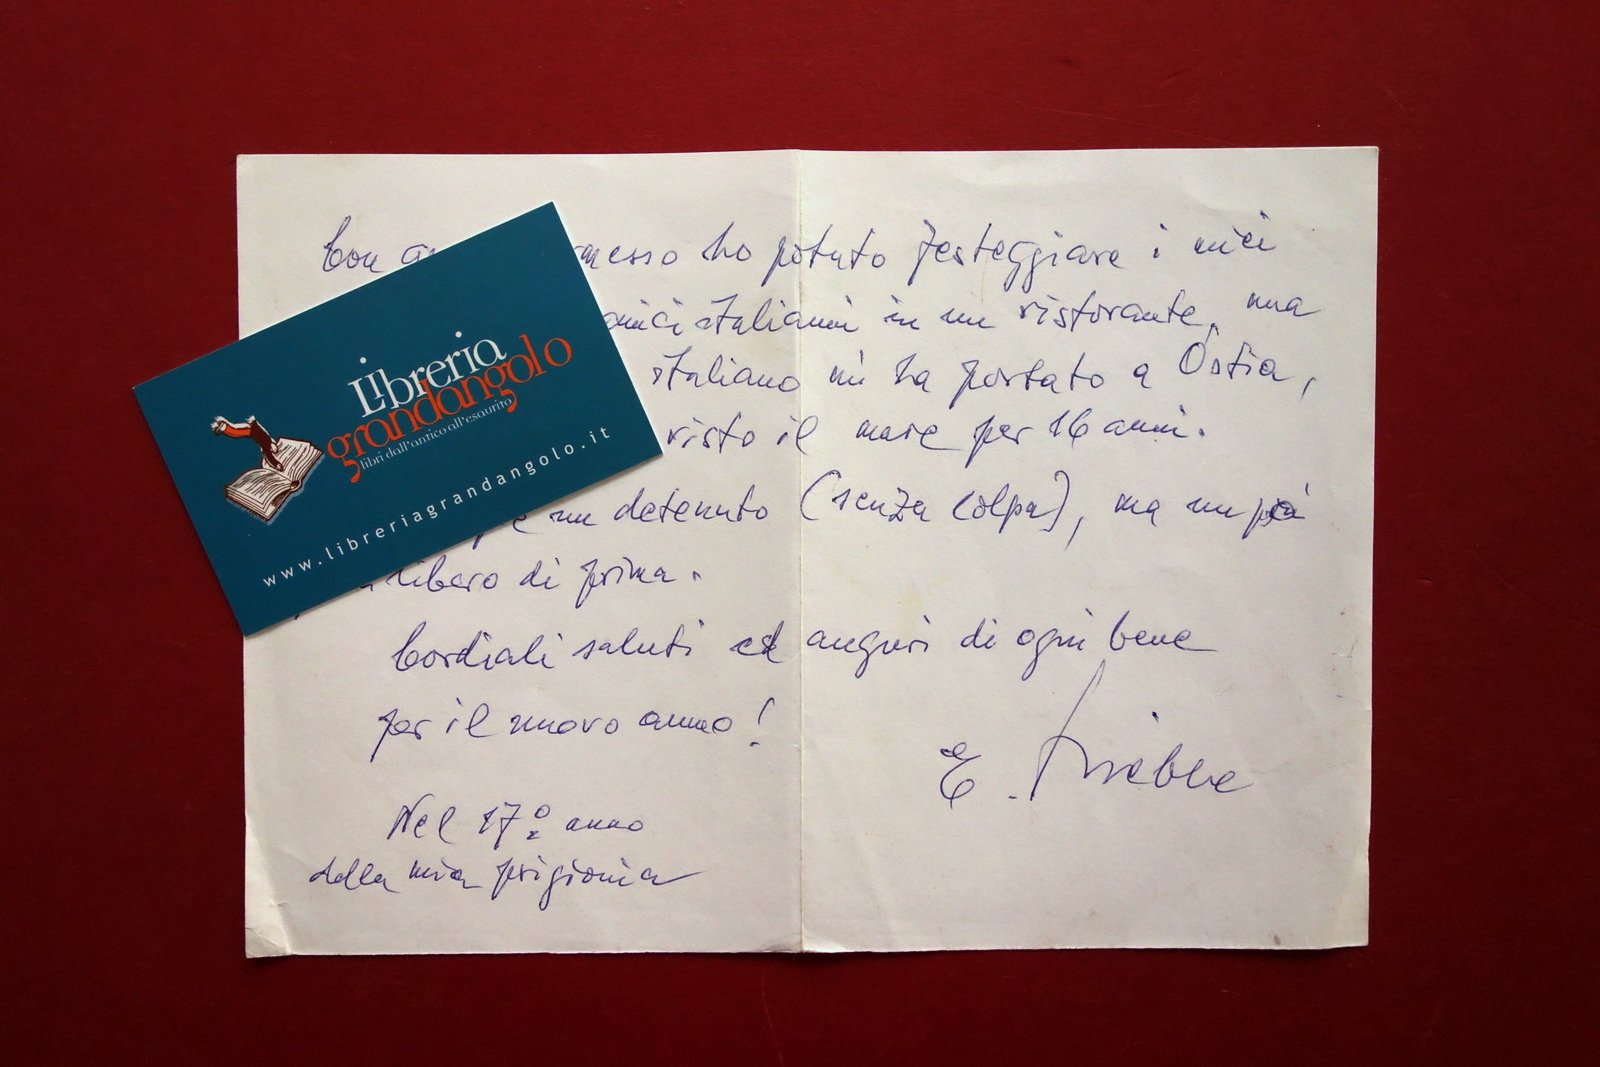 Con messo ho potuto festeggiare i miei
amici italiani in un ristorante, una
italiano mi ha portato a Ostia,
visto il mare per 16 anni.
un detenuto (senza colpa), ma un pò
libero di prima.
Cordiali saluti ed auguri di ogni bene
per il nuovo anno!
E. Priebke
Nel 17º anno
della mia prigionia
Libreria
grandangolo
libri dall'antico all'esaurito
www.libreriagrandangolo.it